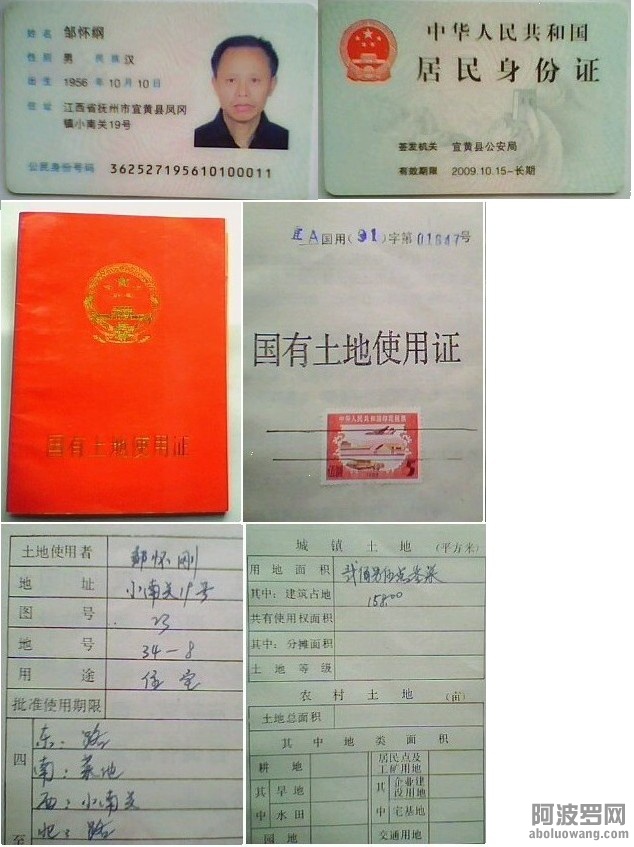 姓名 邹怀纲
性别 男 民族 汉
出生 1956 年 10 月 10 日
住址 江西省抚州市宜黄县凤冈
镇小南关19号
公民身份号码 362527195610100011
中华人民共和国
居民身份证
签发机关 宜黄县公安局
有效期限 2009.10.15-长期
国有土地使用证
宜A国用(91)字第01847号
国有土地使用证
中华人民共和国印花税票
伍圆 5
土地使用者 邹怀刚
地 址 小南关19号
图 号 23
地 号 34-8
用 途 住宅
批准使用期限
四
至
东: 路
南: 菜地
西: 小南关
北: 路
城镇土地 (平方米)
用地面积
其中: 建筑占地 158.00
共有使用权面积
其中: 分摊面积
土地等级
农村土地 (亩)
土地总面积
其中地类面积
耕地 居民点及工矿用地
其中 旱地 其中 企业建设用地
水田 宅基地
园地 交通用地
阿波罗网
aboluowang.com